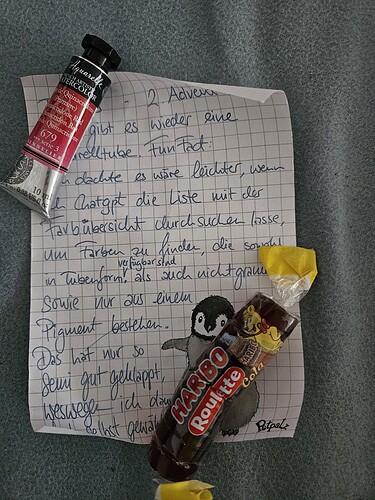 Aquarelle
WATERCOLOR
679
Série 3
10 ml
- 2. Advent
gibt es wieder eine
Fun Fact:
dachte es wäre leichter, wenn
Chatgpt die Liste mit der
Farbübersicht durchsuchen lasse,
um Farben zu finden, die sowohl
verfügbar sind
in Tubenform, als auch nicht
sowie nur aus einem
Pigment bestehen.
Das hat nur so
semi gut geklappt,
weswegen ich dann
selbst
HARIBO
Roulette
Cola